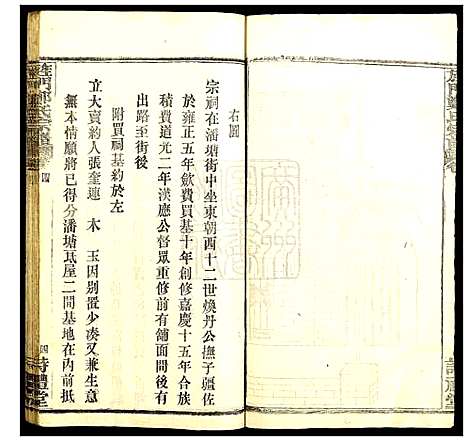 右圖
宗祠在潘塘街中坐東朝西十二世煥丹公撫子疆佐
於雍正五年歛費買基十年創修嘉慶十五年合族
積費道光二年漢應公督眾重修前有舖面間後有
出路至街後
附買祠基約於左
立大賣約人張奎連 木 玉因别置少凑又兼生意
無本情願將己得分潘塘瓦屋二間基地在內前抵
門鄭氏宗譜
四
四
詩禮堂